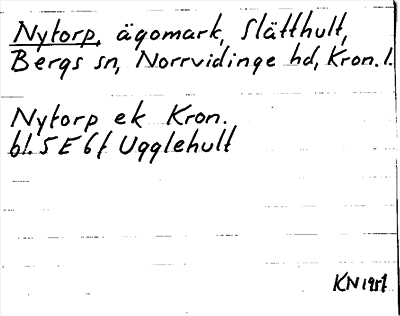 Nytorp, ägomark, Slätthult,
Bergs sn, Norrvidinge hd, Kron. l.
Nytorp ek Kron.
bl. 5 E 6f Ugglehult
KN 1957